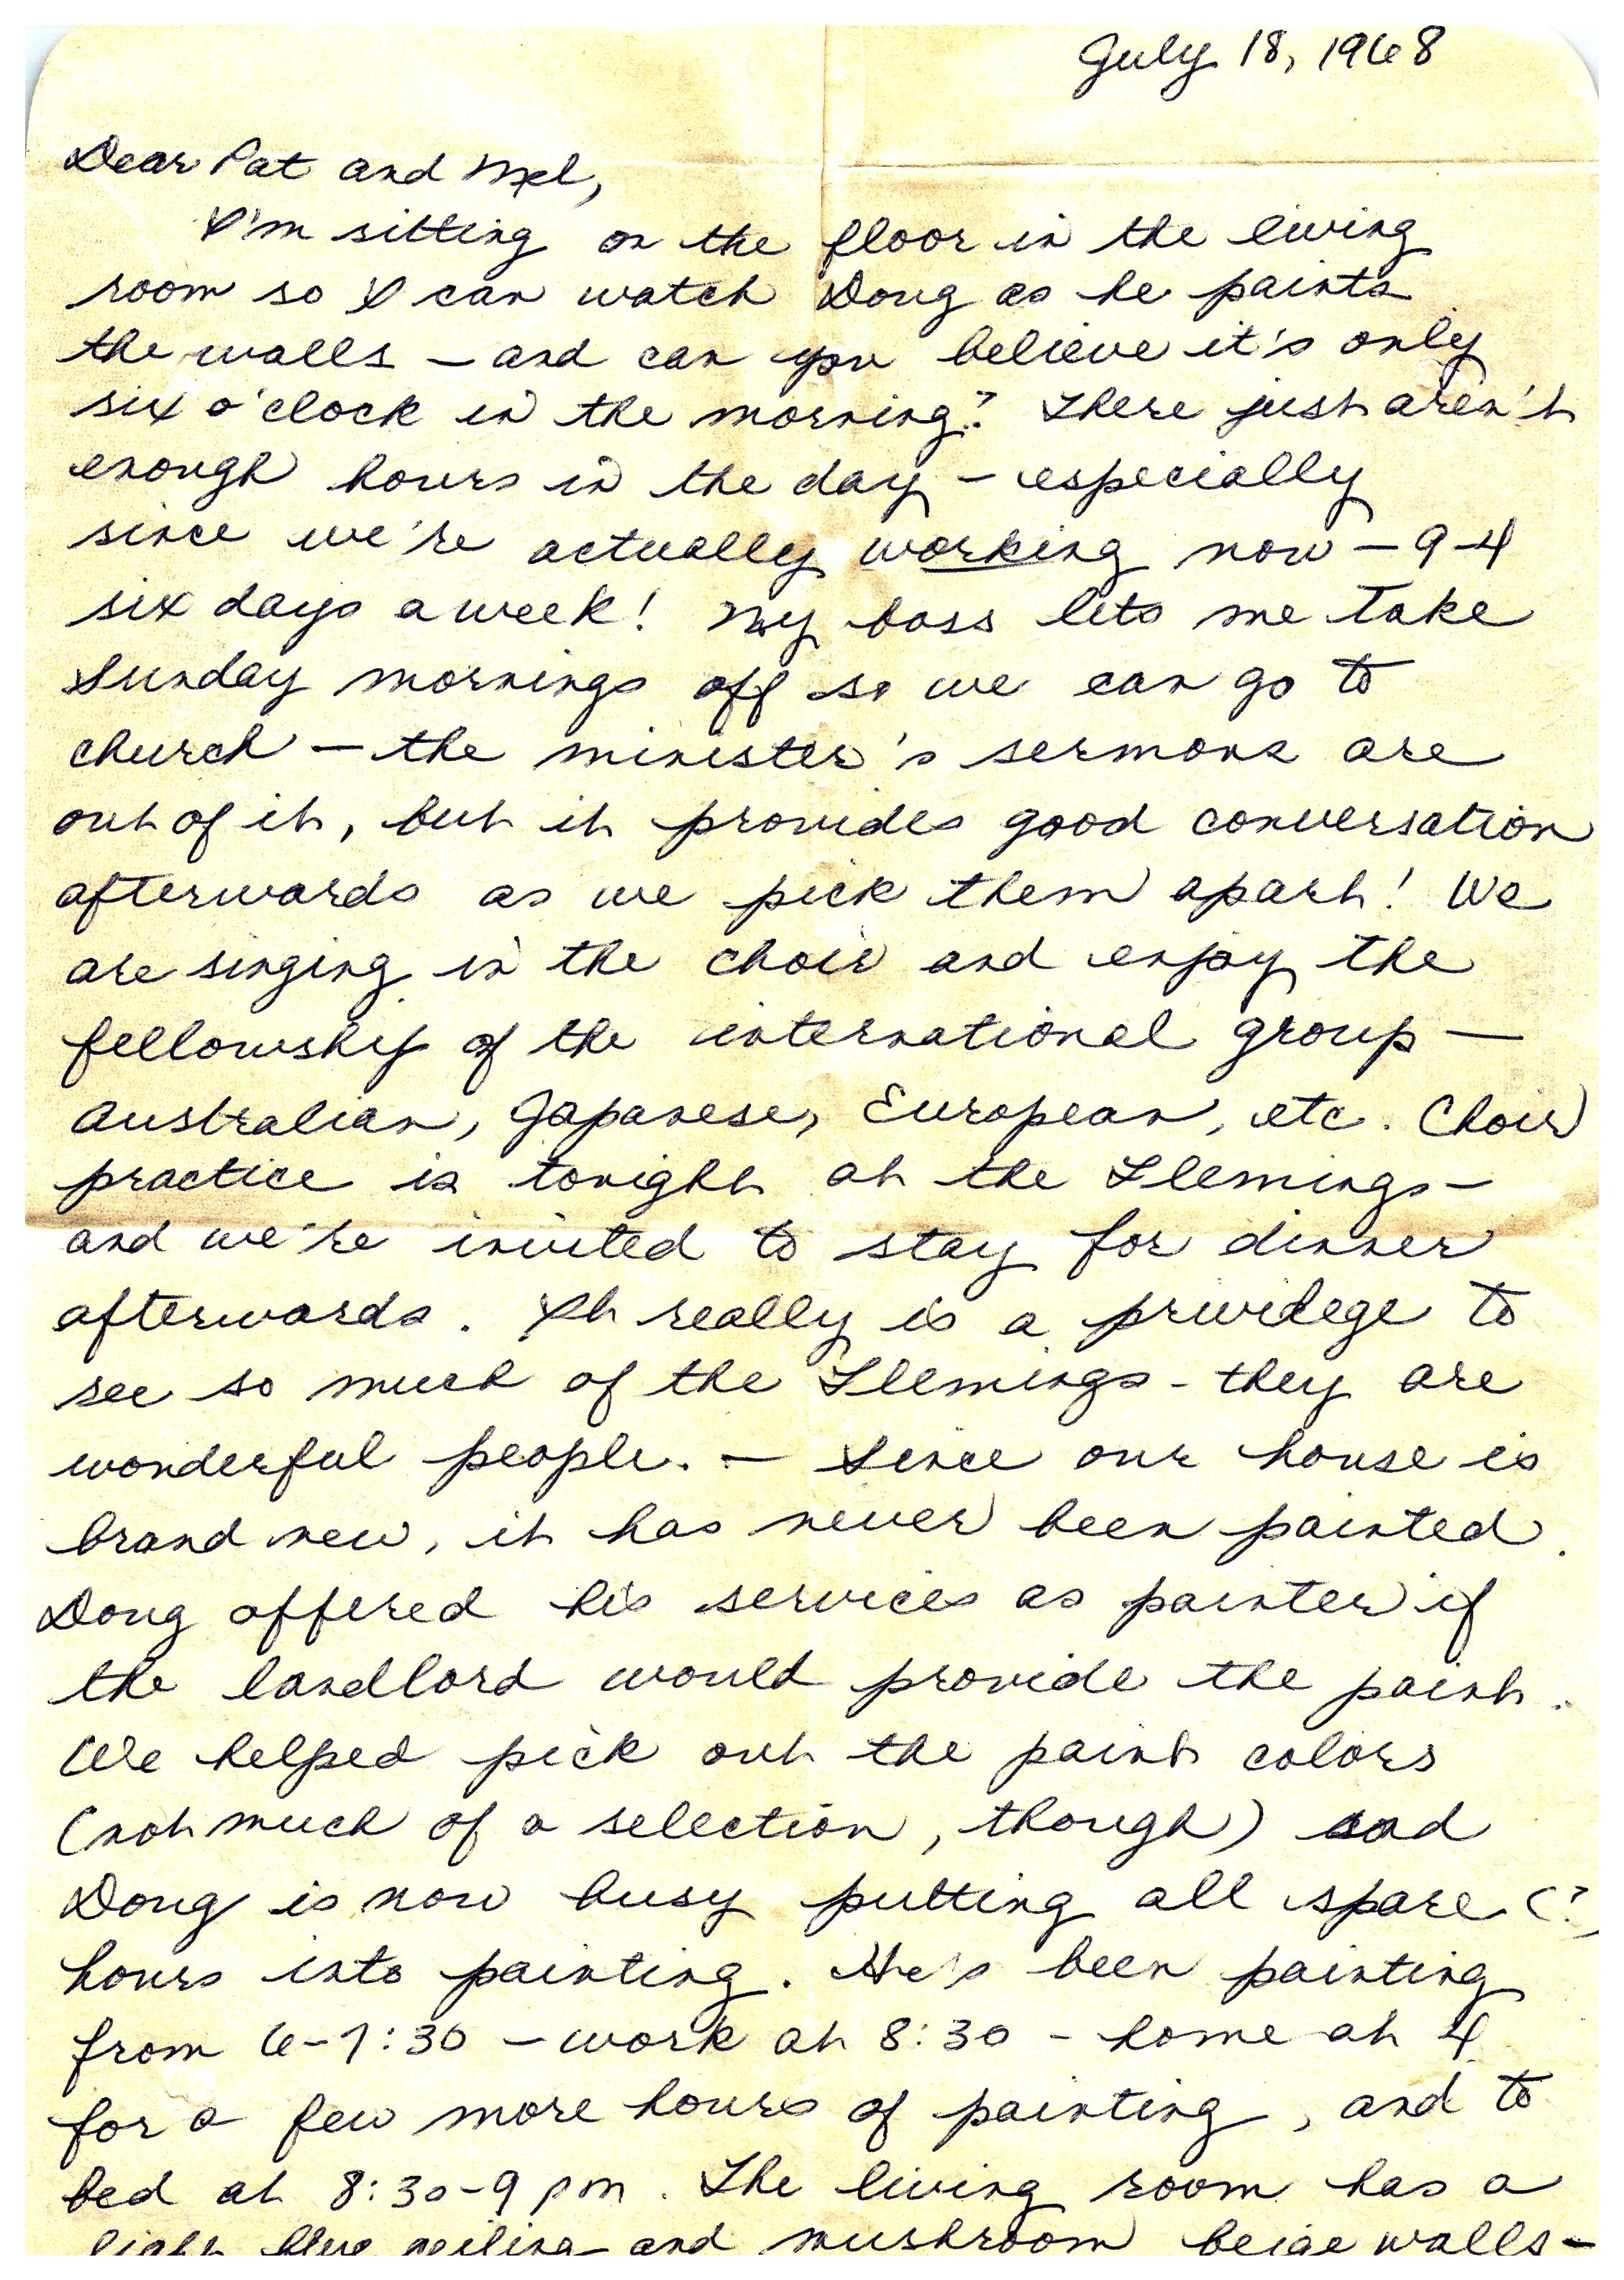 July 18, 1968
Dear Pat and Mel,
I'm sitting on the floor in the living
room so I can watch Doug as he paints
the walls – and can you believe it's only
six o'clock in the morning? There just aren't
enough hours in the day – especially
since we're actually working now – 9-4
six days a week! My boss lets me take
Sunday mornings off so we can go to
church – the minister's sermons are
out of it, but it provides good conversation
afterwards as we pick them apart! We
are singing in the choir and enjoy the
fellowship of the international group –
Australian, Japanese, European, etc. Choir
practice is tonight at the Flemings –
and we're invited to stay for dinner
afterwards. It really is a privilege to
see so much of the Flemings - they are
wonderful people. – Since our house is
brand new, it has never been painted.
Doug offered his services as painter if
the landlord would provide the paint.
We helped pick out the paint colors
(not much of a selection, though) and
Doug is now busy putting all spare (?)
hours into painting. He's been painting
from 6-7:30 – work at 8:30 - home at 4
for a few more hours of painting, and to
bed at 8:30-9 pm. The living room has a
light blue ceiling and mushroom beige walls –